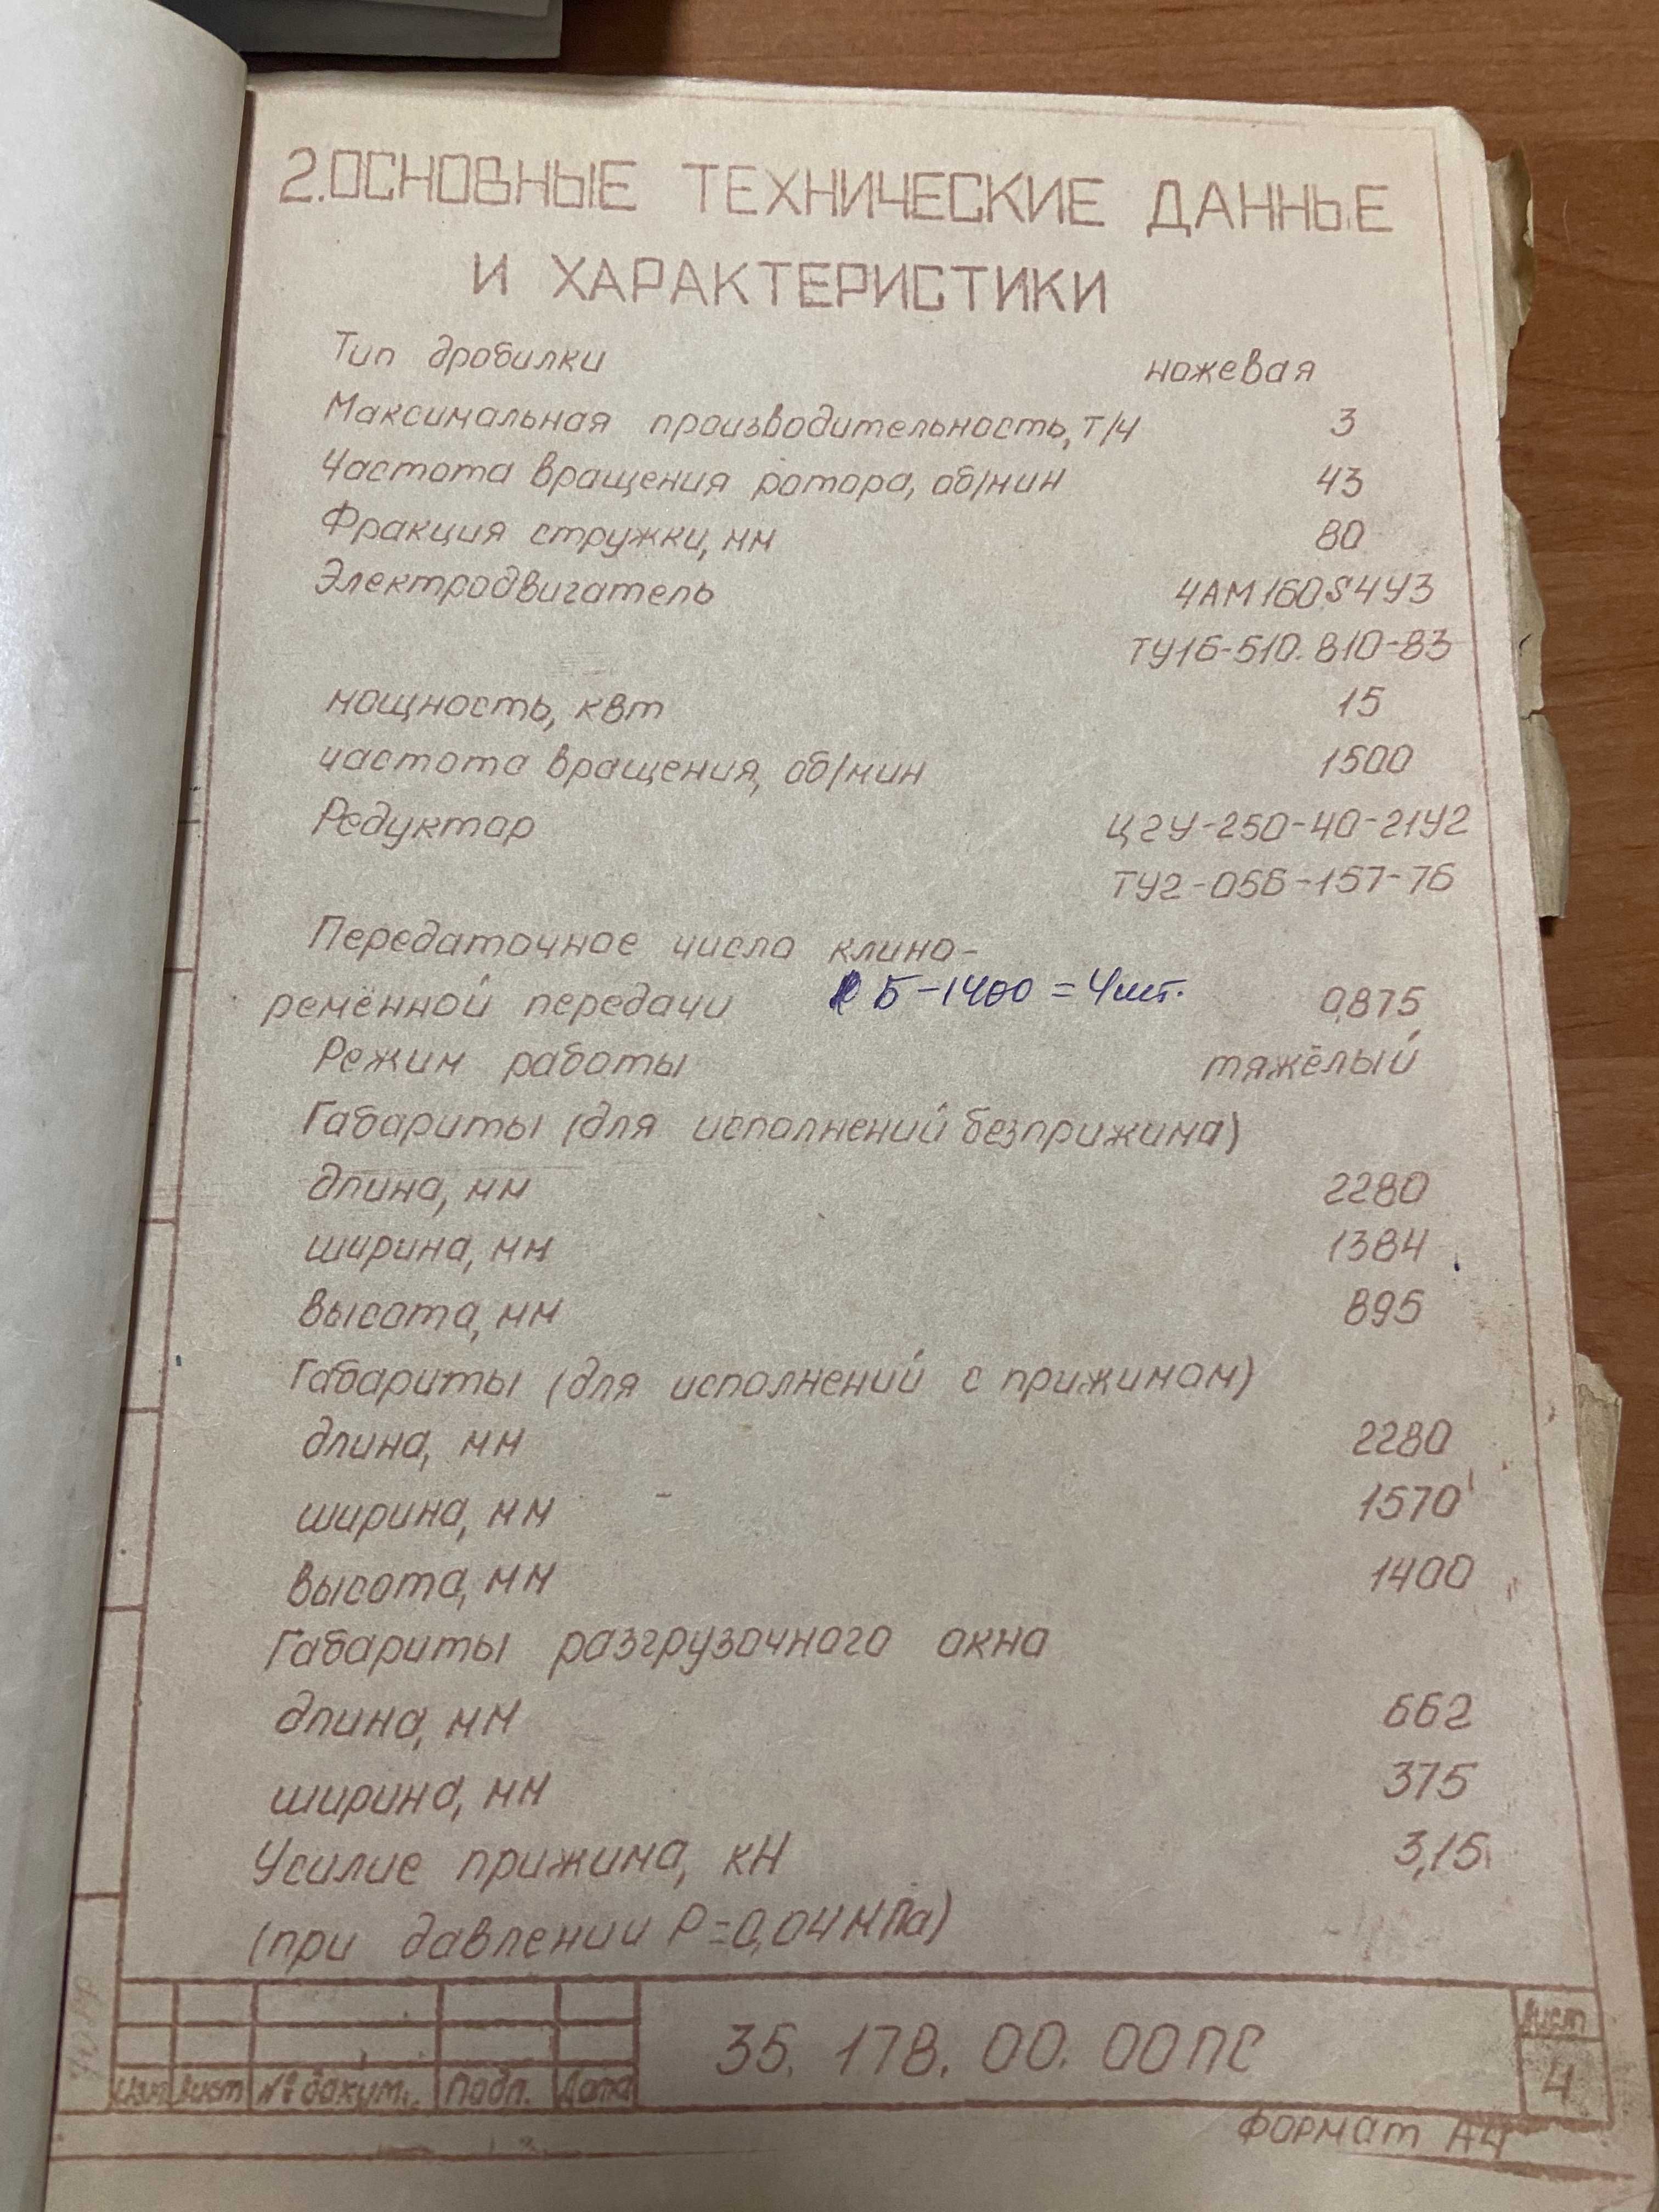 2. ОСНОВНЫЕ ТЕХНИЧЕСКИЕ ДАННЫЕ
И ХАРАКТЕРИСТИКИ
Тип дробилки ножевая
Максимальная производительность, т/ч 3
Частота вращения ротора, об/мин 43
Фракция стружки, мм 80
Электродвигатель 4АМ160S4У3
ТУ16-510.810-83
мощность, квт 15
частота вращения, об/мин 1500
Редуктор Ц2У-250-40-21У2
ТУ2-056-157-76
Передаточное число клино-
ремённой передачи Б-1400 = 4шт. 0,875
Режим работы тяжёлый
Габариты (для исполнений без прижима)
длина, мм 2280
ширина, мм 1384
высота, мм 895
Габариты (для исполнений с прижимом)
длина, мм 2280
ширина, мм 1570
высота, мм 1400
Габариты разгрузочного окна
длина, мм 662
ширина, мм 375
Усилие прижима, кН 3,15
(при давлении Р=0,04 МПа)
35.178.00.00ПС
Лист
4
Изм Лист № докум. Подп. Дата
Формат А4